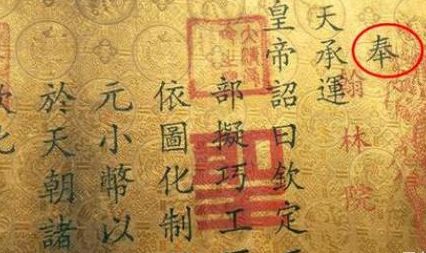 奉
天承運
皇帝詔曰欽定
部擬巧工
依圖化制
元小幣以
於天朝諸
翰林院